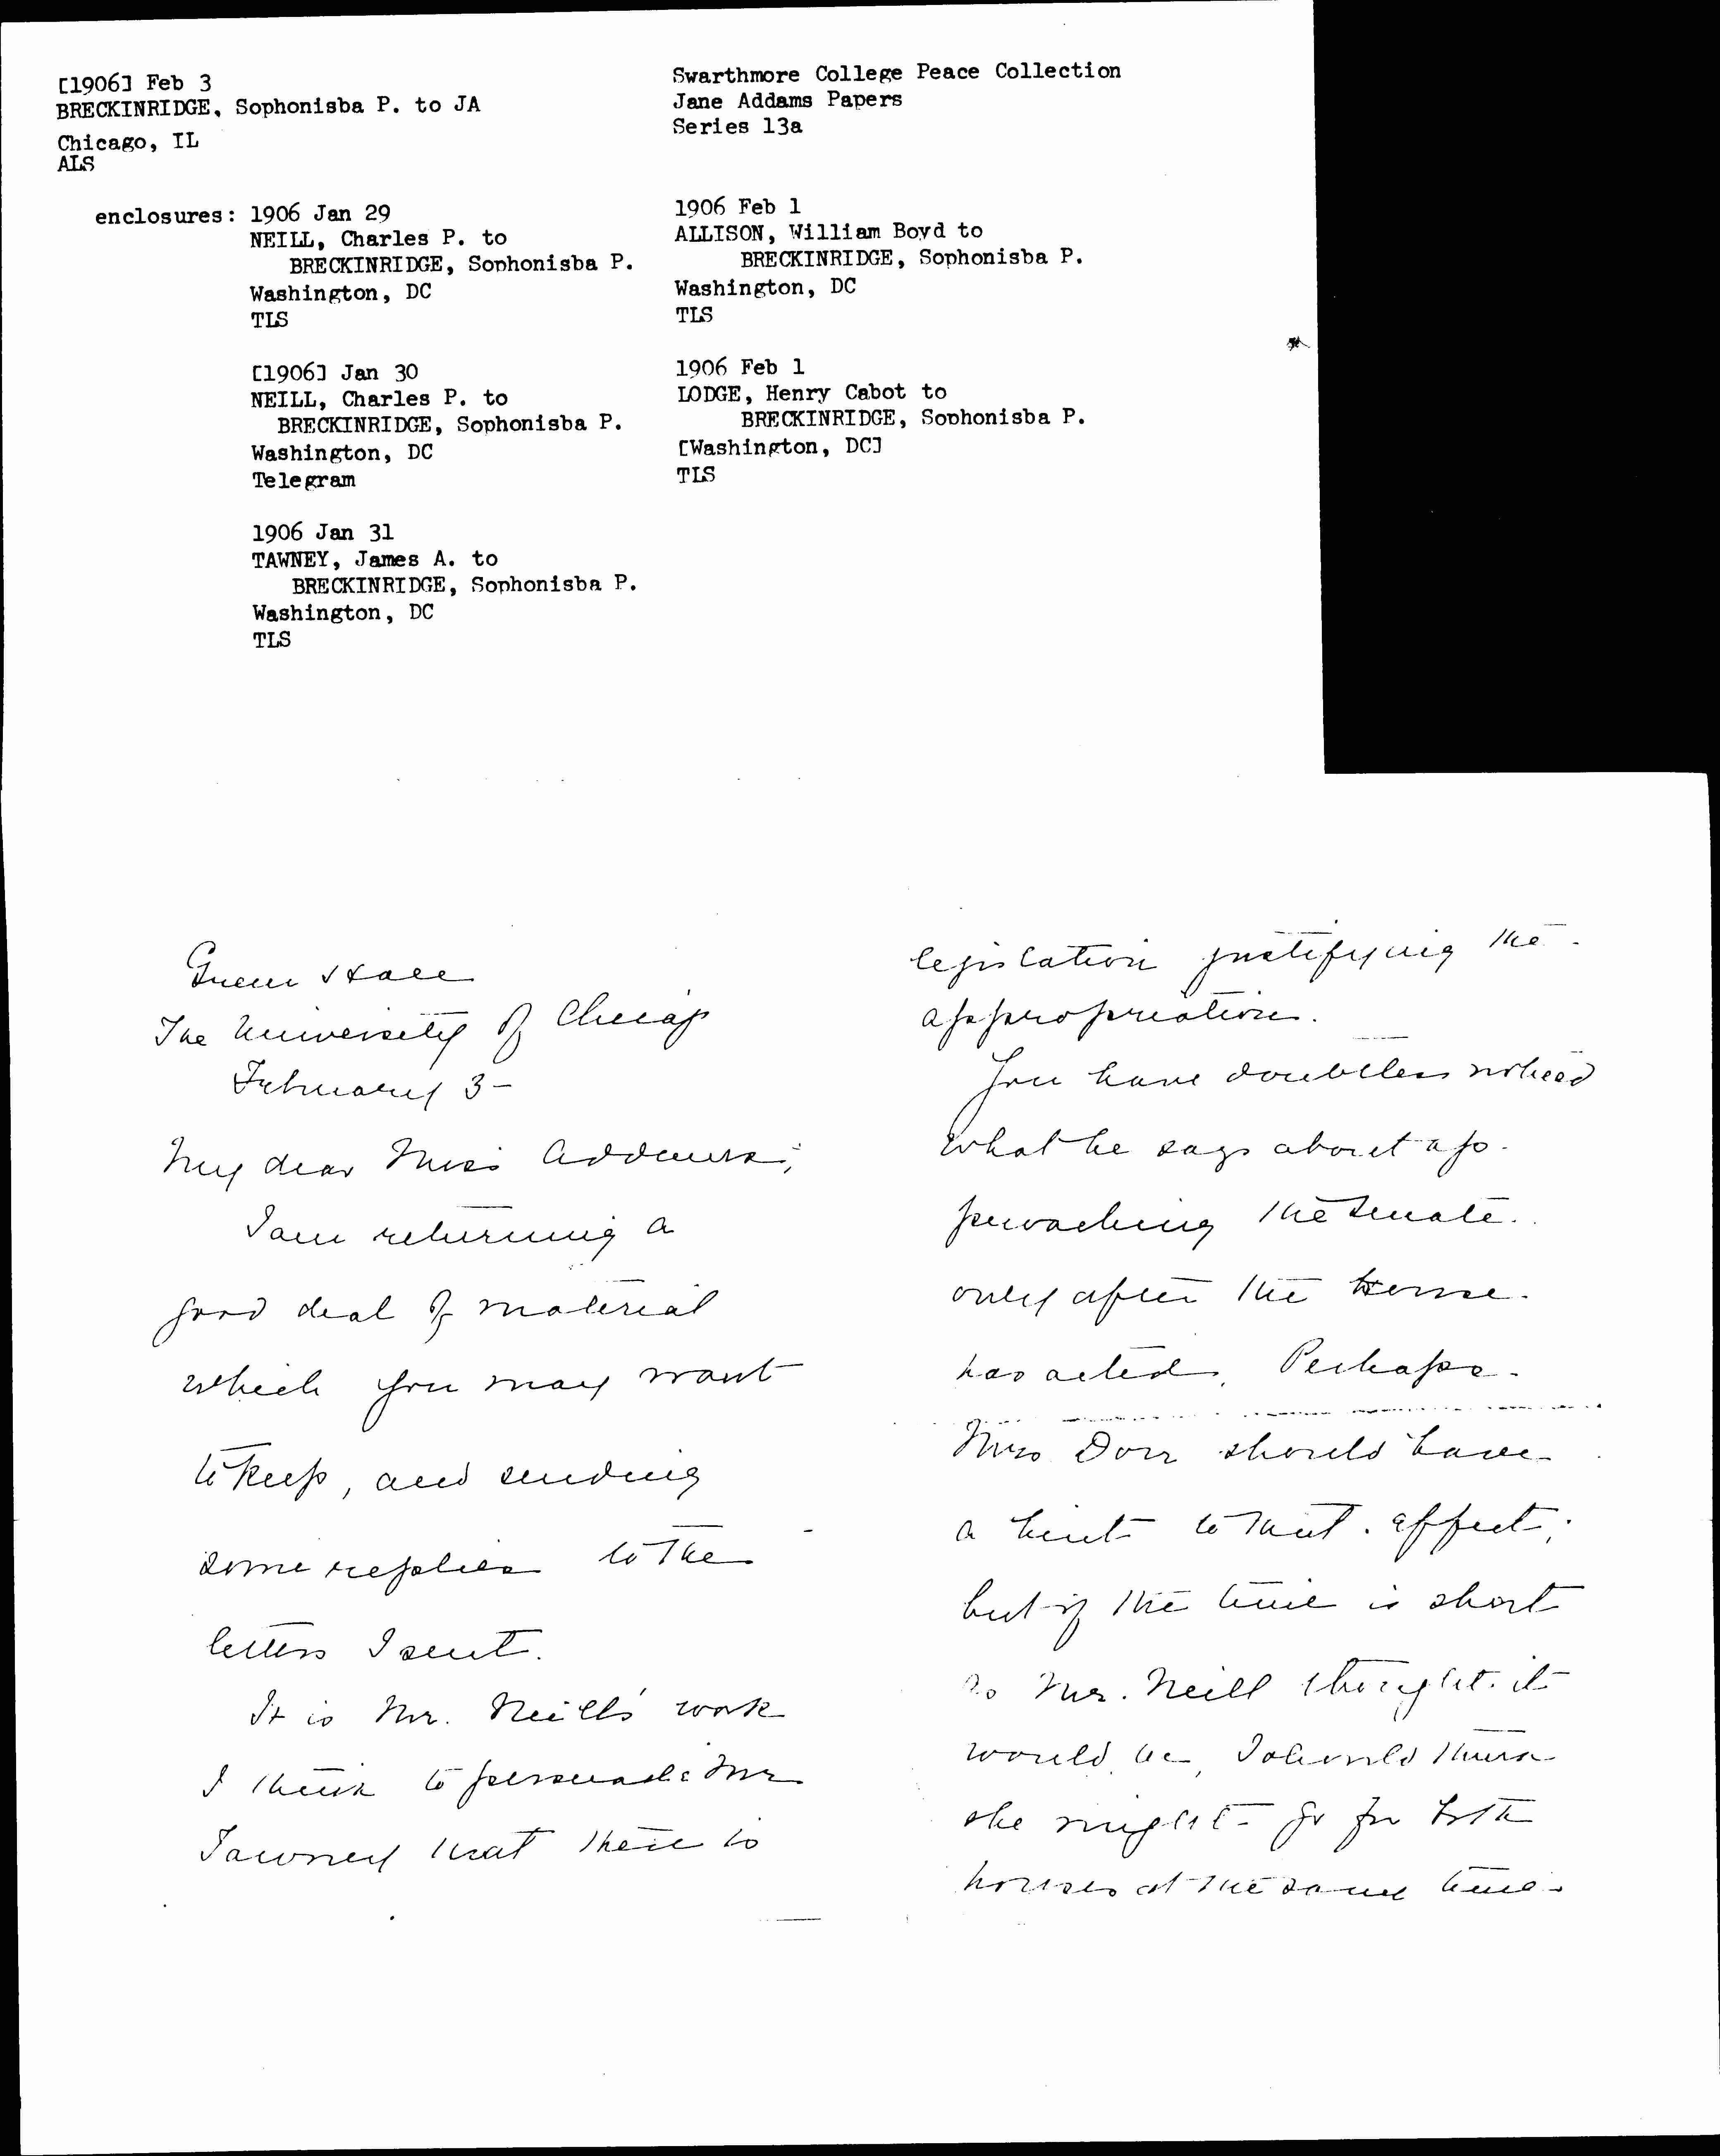 [1906] Feb 3
BRECKINRIDGE, Sophonisba P. to JA
Chicago, IL
ALS
Swarthmore College Peace Collection
Jane Addams Papers
Series 13a
enclosures: 1906 Jan 29
NEILL, Charles P. to
BRECKINRIDGE, Sophonisba P.
Washington, DC
TLS
[1906] Jan 30
NEILL, Charles P. to
BRECKINRIDGE, Sophonisba P.
Washington, DC
Telegram
1906 Jan 31
TAWNEY, James A. to
BRECKINRIDGE, Sophonisba P.
Washington, DC
TLS
1906 Feb 1
ALLISON, William Boyd to
BRECKINRIDGE, Sophonisba P.
Washington, DC
TLS
1906 Feb 1
LODGE, Henry Cabot to
BRECKINRIDGE, Sophonisba P.
[Washington, DC]
TLS
Green Hall
The University of Chicago
February 3-
My dear Miss Addams;
I am returning a
good deal of material
which you may want
to keep, and sending
some replies to the
letters I sent.
It is Mr. Neill's work
I think to persuade Mr
Tawney that there is
legislation justifying the
appropriation.
You have doubtless noticed
what he says about ap-
proaching the Senate
only after the House
has acted. Perhaps
Mrs Dorr should have
a hint to that effect;
but if the time is short
as Mr. Neill thought it
would be, I should think
she might go for both
houses at the same time-